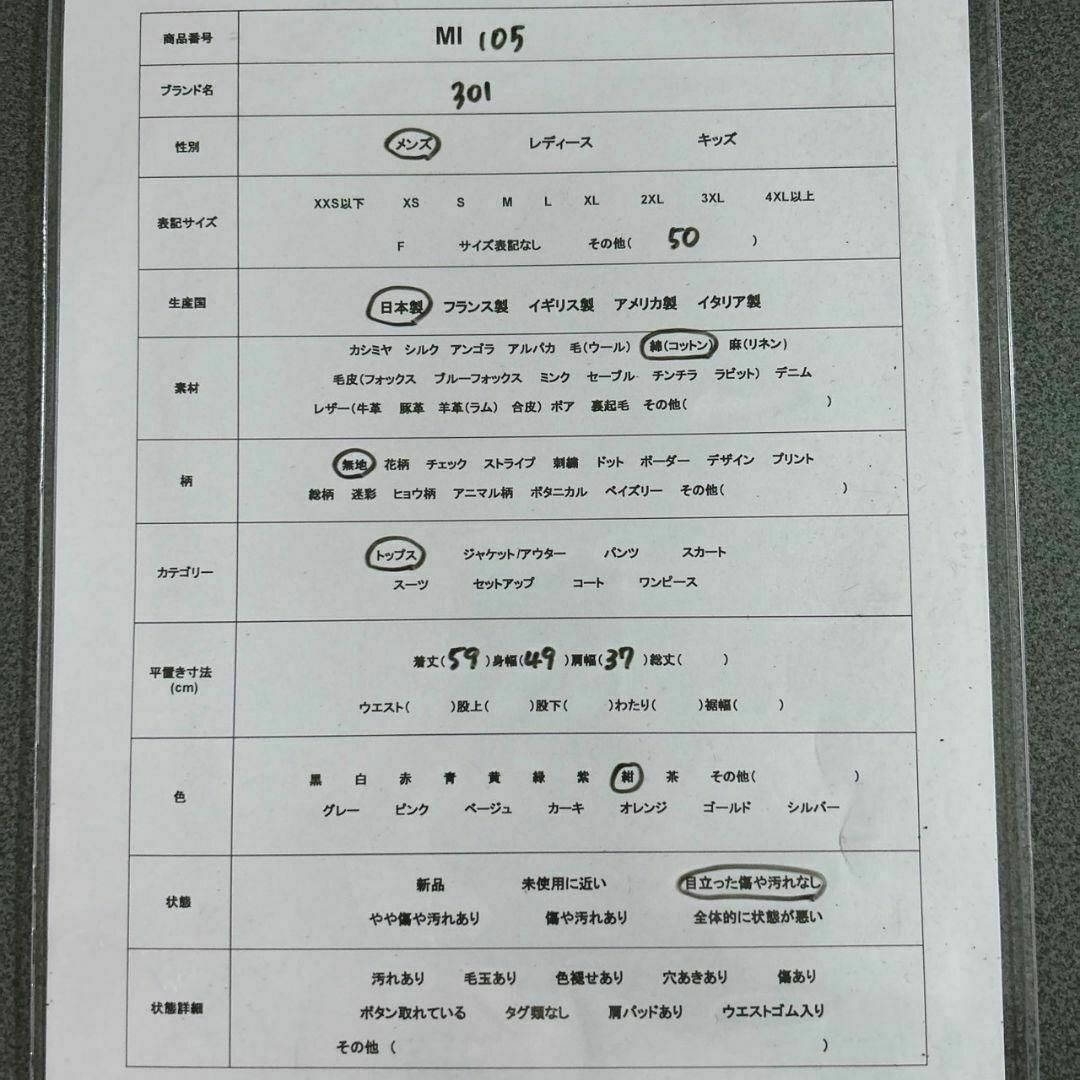 商品番号 MI 105
ブランド名 301
性別 メンズ レディース キッズ
表記サイズ
XXS以下 XS S M L XL 2XL 3XL 4XL以上
F サイズ表記なし その他( 50 )
生産国 日本製 フランス製 イギリス製 アメリカ製 イタリア製
素材
カシミヤ シルク アンゴラ アルパカ 毛(ウール) 綿(コットン) 麻(リネン)
毛皮(フォックス ブルーフォックス ミンク セーブル チンチラ ラビット) デニム
レザー(牛革 豚革 羊革(ラム) 合皮) ボア 裏起毛 その他( )
柄
無地 花柄 チェック ストライプ 刺繍 ドット ボーダー デザイン プリント
総柄 迷彩 ヒョウ柄 アニマル柄 ボタニカル ペイズリー その他( )
カテゴリー
トップス ジャケット/アウター パンツ スカート
スーツ セットアップ コート ワンピース
平置き寸法
(cm)
着丈(59)身幅(49)肩幅(37)総丈( )
ウエスト( )股上( )股下( )わたり( )裾幅( )
色
黒 白 赤 青 黄 緑 紫 紺 茶 その他( )
グレー ピンク ベージュ カーキ オレンジ ゴールド シルバー
状態
新品 未使用に近い 目立った傷や汚れなし
やや傷や汚れあり 傷や汚れあり 全体的に状態が悪い
状態詳細
汚れあり 毛玉あり 色褪せあり 穴あきあり 傷あり
ボタン取れている タグ類なし 肩パッドあり ウエストゴム入り
その他 ( )